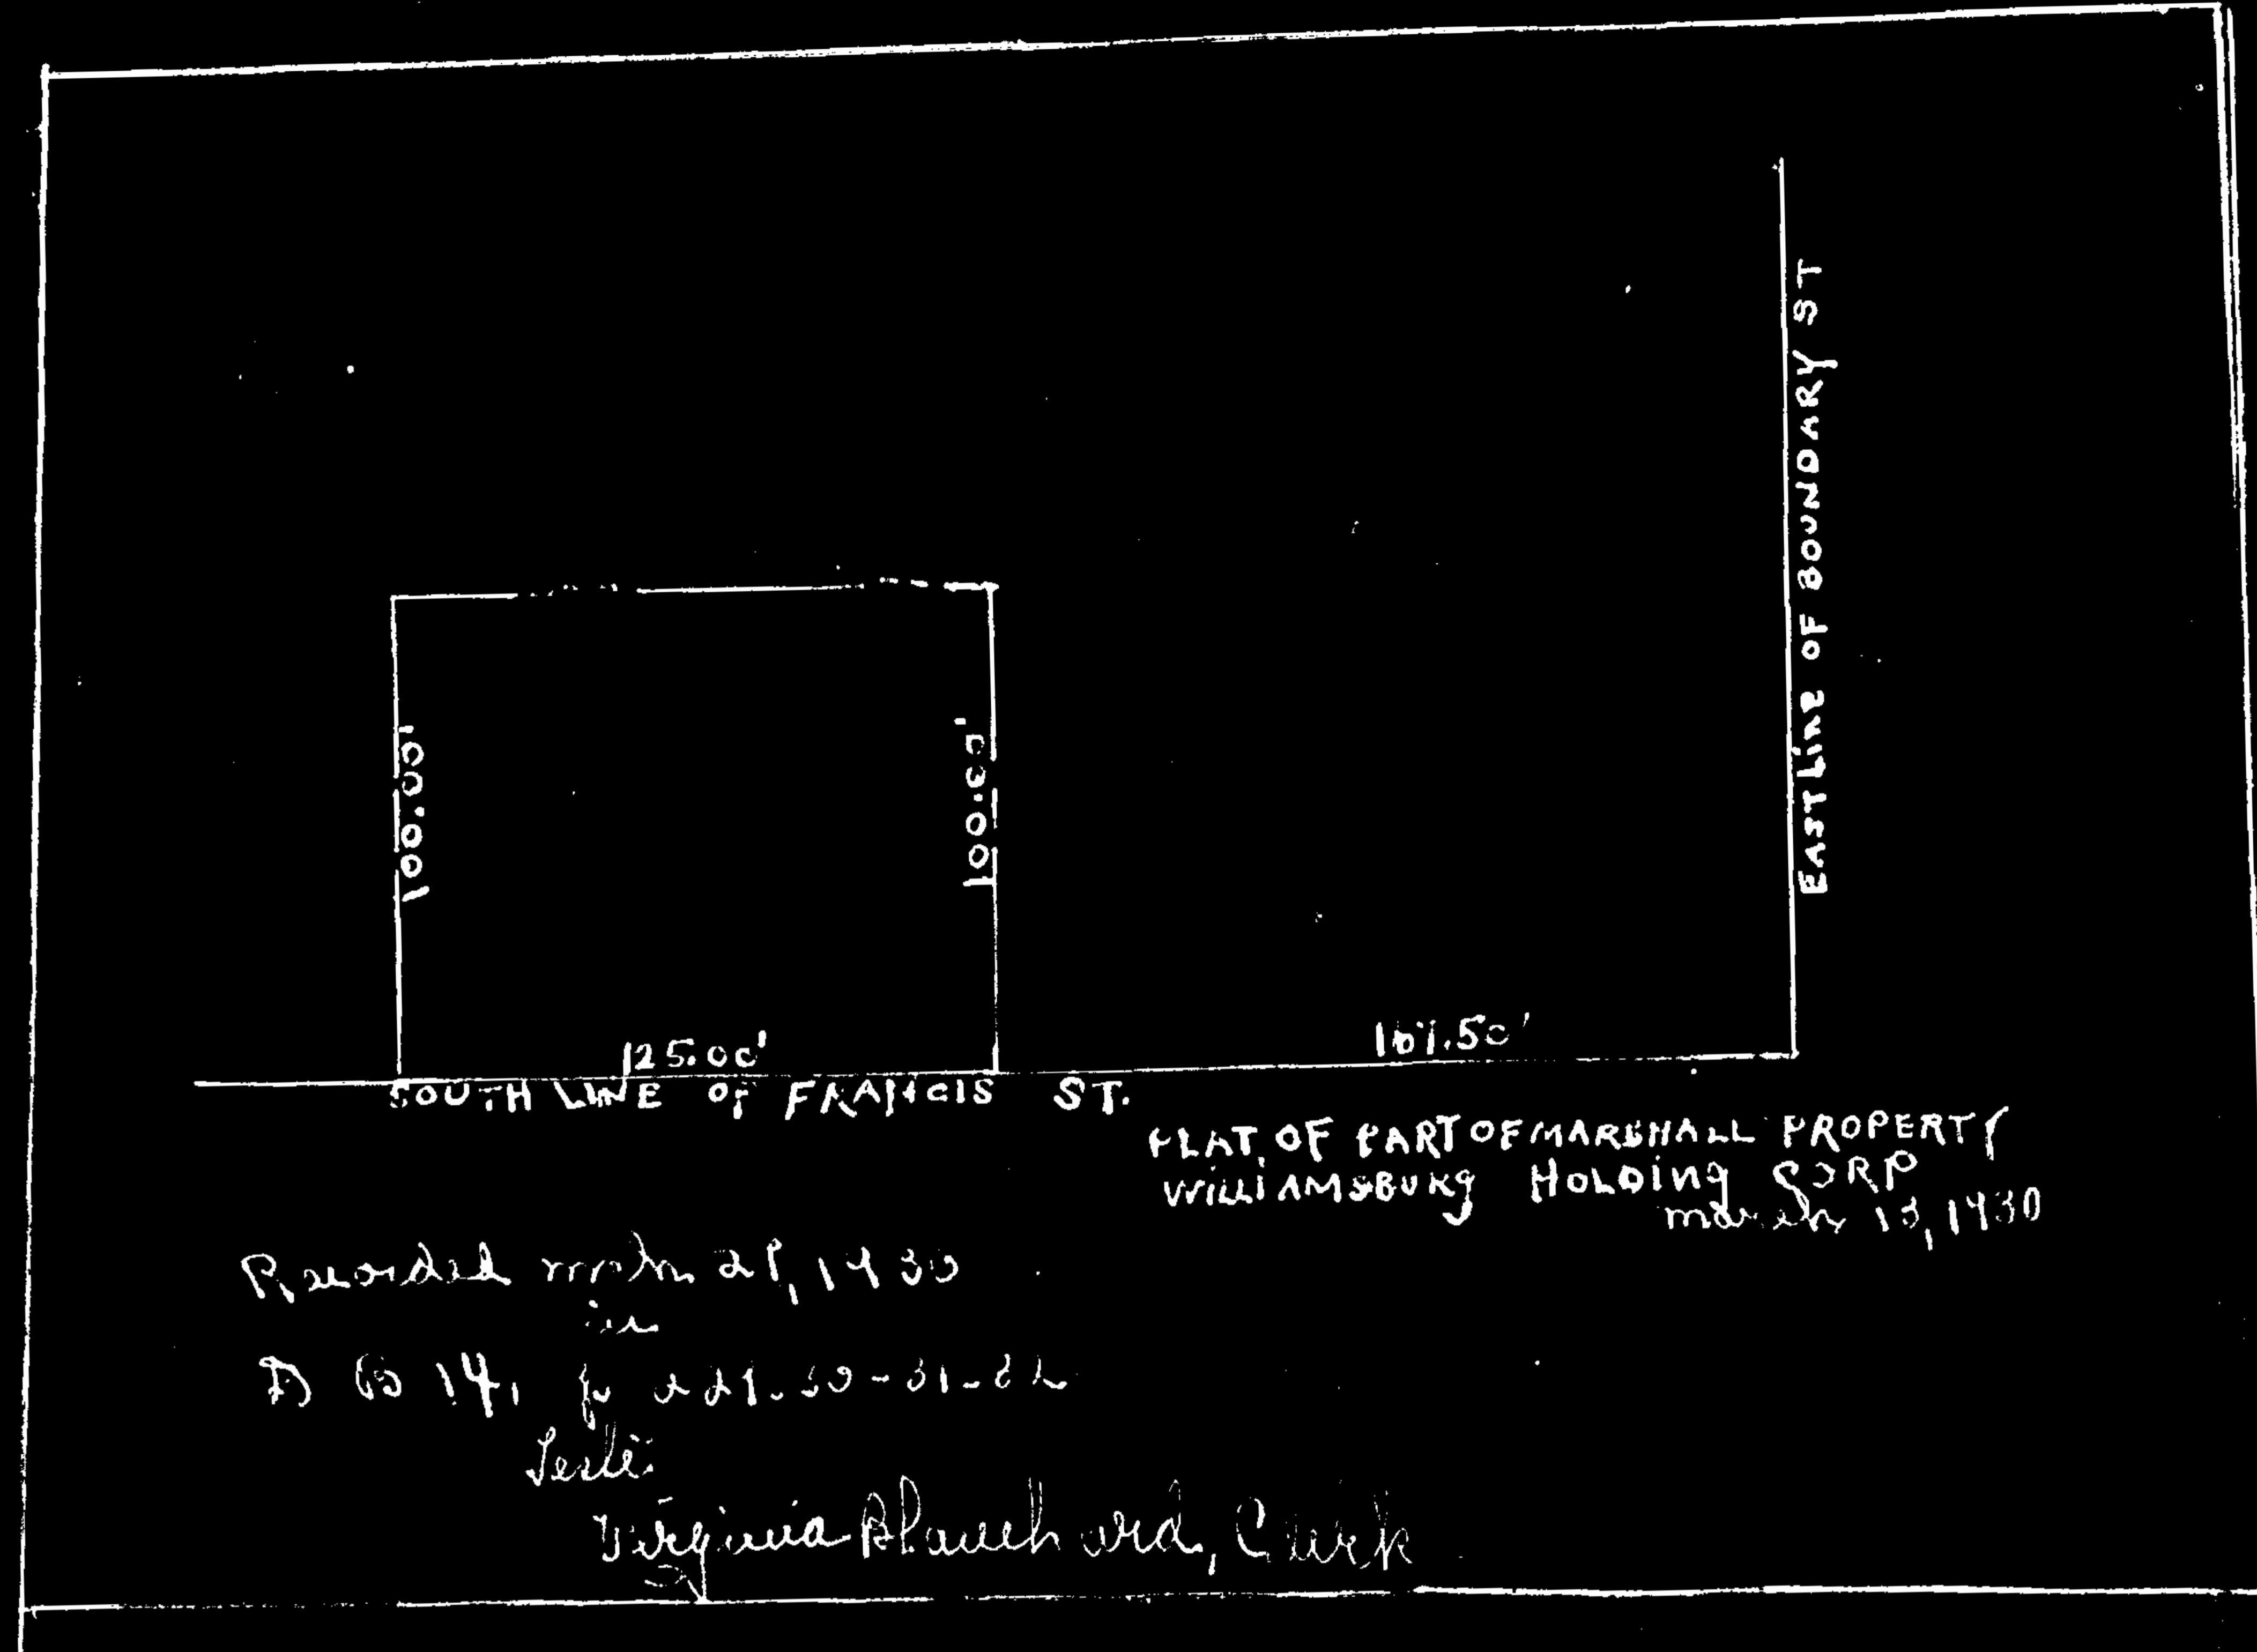 EAST LINE OF BOUNDARY ST
100.00'
100.00'
125.00'
SOUTH LINE OF FRANCIS ST.
PLAT OF PART OF MARSHALL PROPERTY
WILLIAMSBURG HOLDING CORP
march 13, 1930
Recorded 1930
in
D B 14, p 229-30-31-32
Teste:
Virginia Blanchard, Clerk